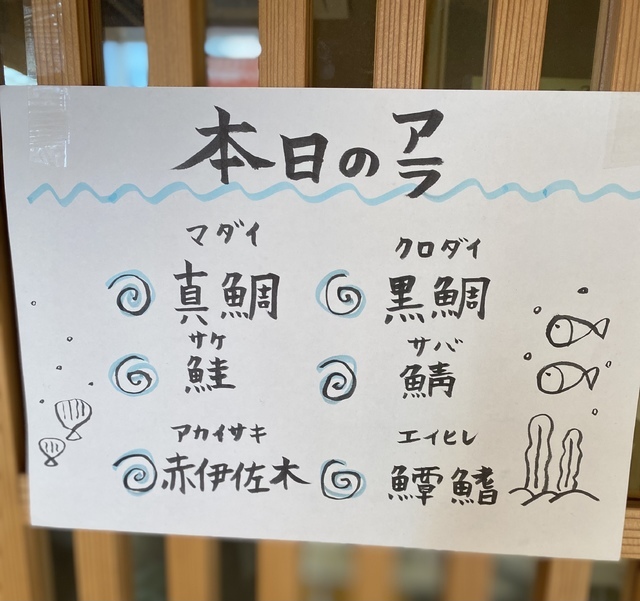 本日のアラ
マダイ
真鯛
クロダイ
黒鯛
サケ
鮭
サバ
鯖
アカイサキ
赤伊佐木
エイヒレ
鱏鰭